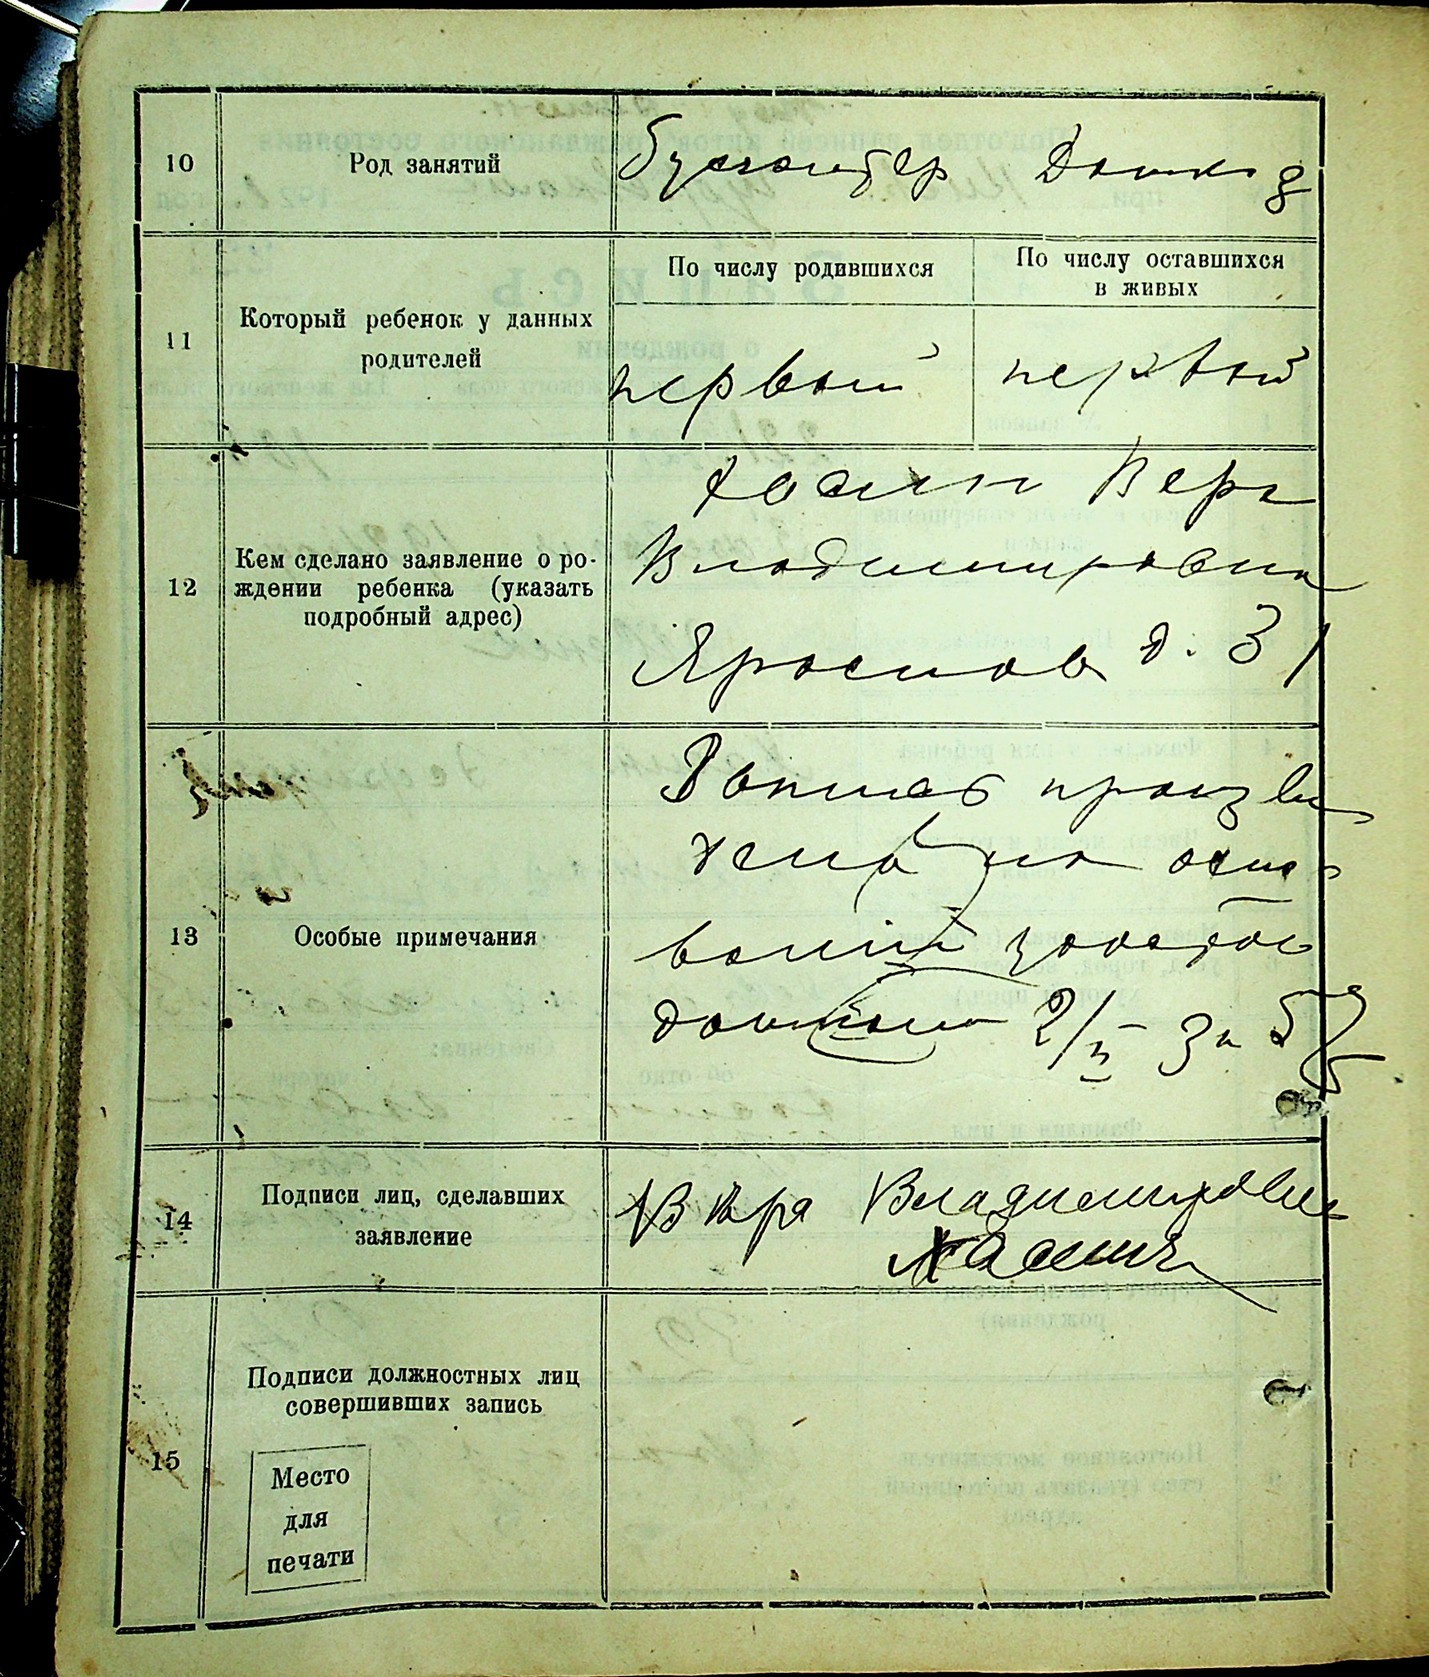 10 Род занятий Бухгалтер Домхоз
11 Который ребенок у данных
родителей
По числу родившихся
По числу оставшихся
в живых
первый первый
12 Кем сделано заявление о ро-
ждении ребенка (указать
подробный адрес)
Вера
Владимировна
Ярослав д. 31
13 Особые примечания
Запись произве
дена на осно-
вании
2/III За
14 Подписи лиц, сделавших
заявление
Вѣра Владимировна
15 Подписи должностных лиц
совершивших запись
Место
для
печати